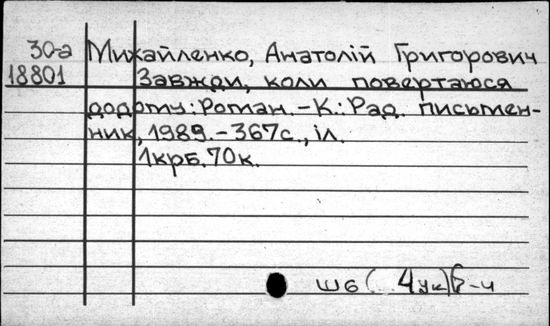 30-а Михайленко, Анатолій Григорович
18801 Завжди, коли повертаюся
додому: Роман. – К.: Рад. письмен-
ник, 1989. – 367с., іл.
1крб. 70к.
Ш6 ( 4Ук)6-4